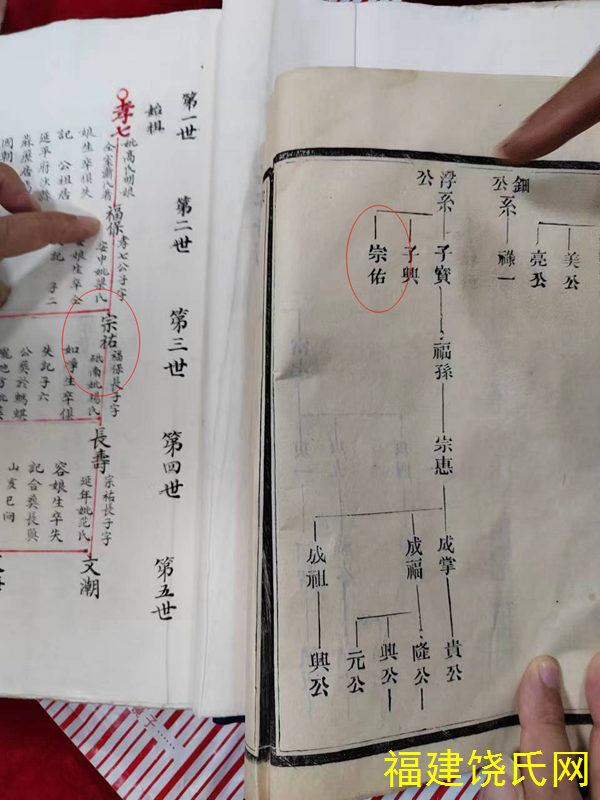 第一世
始祖
孝七
妣高氏明娘
娘生卒俱失
記 公祖居
第二世
福保
孝七公子字
安申妣梁氏
第三世
宗祐
福保長子字
如淨生卒俱
失記子六
第四世
長壽
宗祐長子字
延年妣范氏
容娘生卒失
記合葬長興
山亥巳向
第五世
文潮
美公
亮公
鋼系公
祿一
浮系公
子寶
子興
崇佑
福孫
崇惠
成掌
成福
成祖
貴公
隆公
興公
元公
興公
福建饶氏网